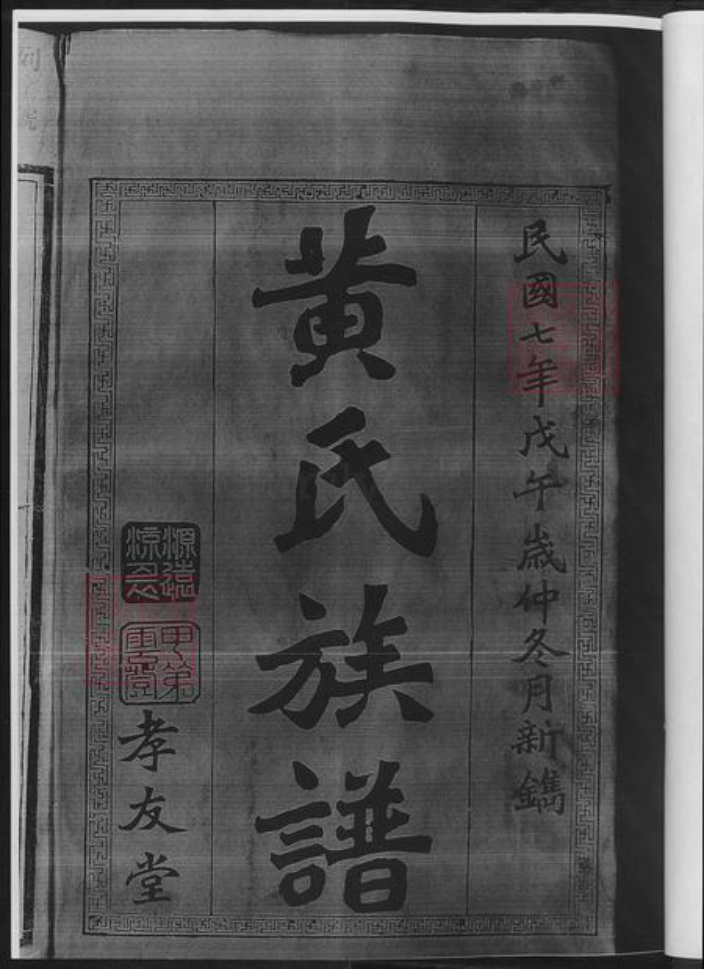 民國七年戊午歲仲冬月新鐫
黃氏族譜
孝友堂